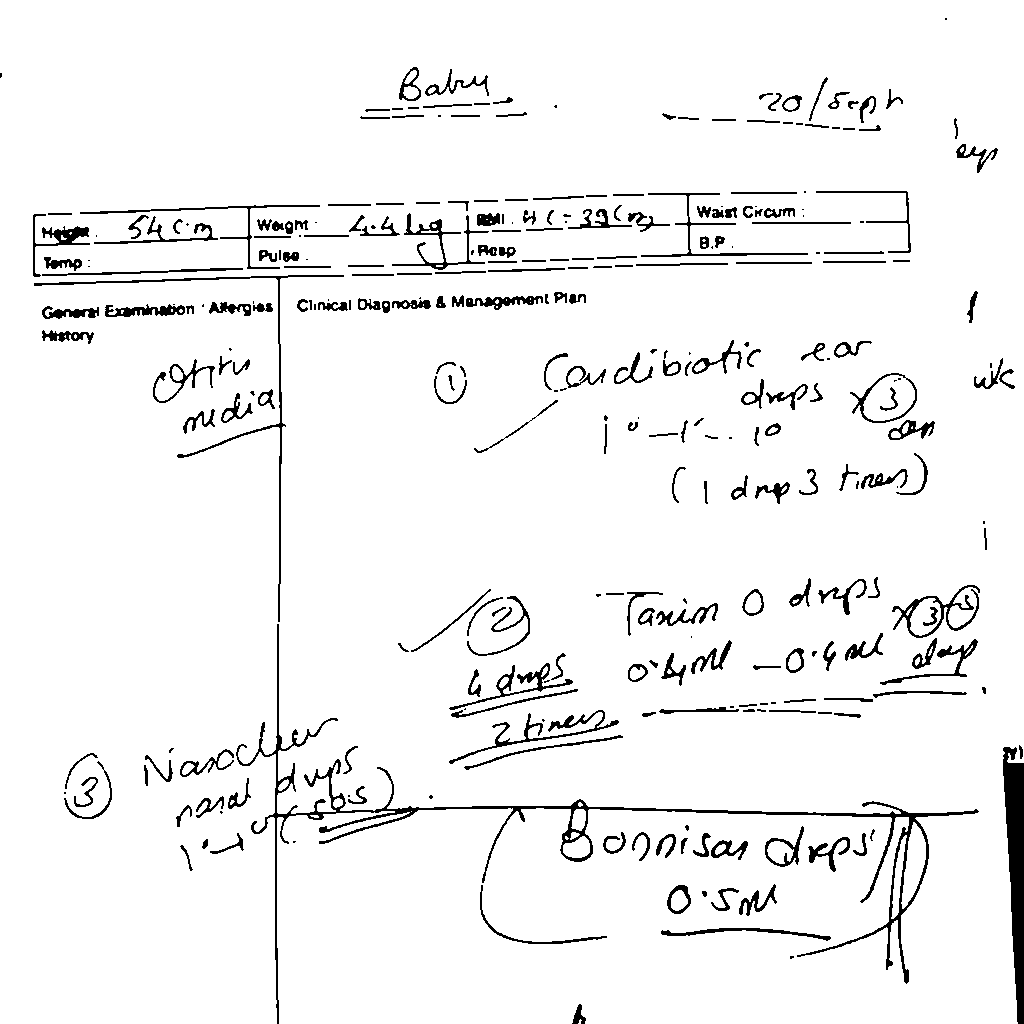 Baby
20/Sept
Height: 54 cm Weight: 4.4 kg BMI: HC-39cm Waist Circum:
Temp: Pulse: Resp B.P.
General Examination · Allergies
History
Clinical Diagnosis & Management Plan
Otitis
media
① Candibiotic ear
drops x③
1°-1°-1°
(1 drop 3 times)
② Taxim O drops
0.4ml - 0.4ml x③-⑤
days
4 drops
2 times
③ Nasoclear
nasal drops
1°-1° (SOS)
Bonnisan drops
0.5ml